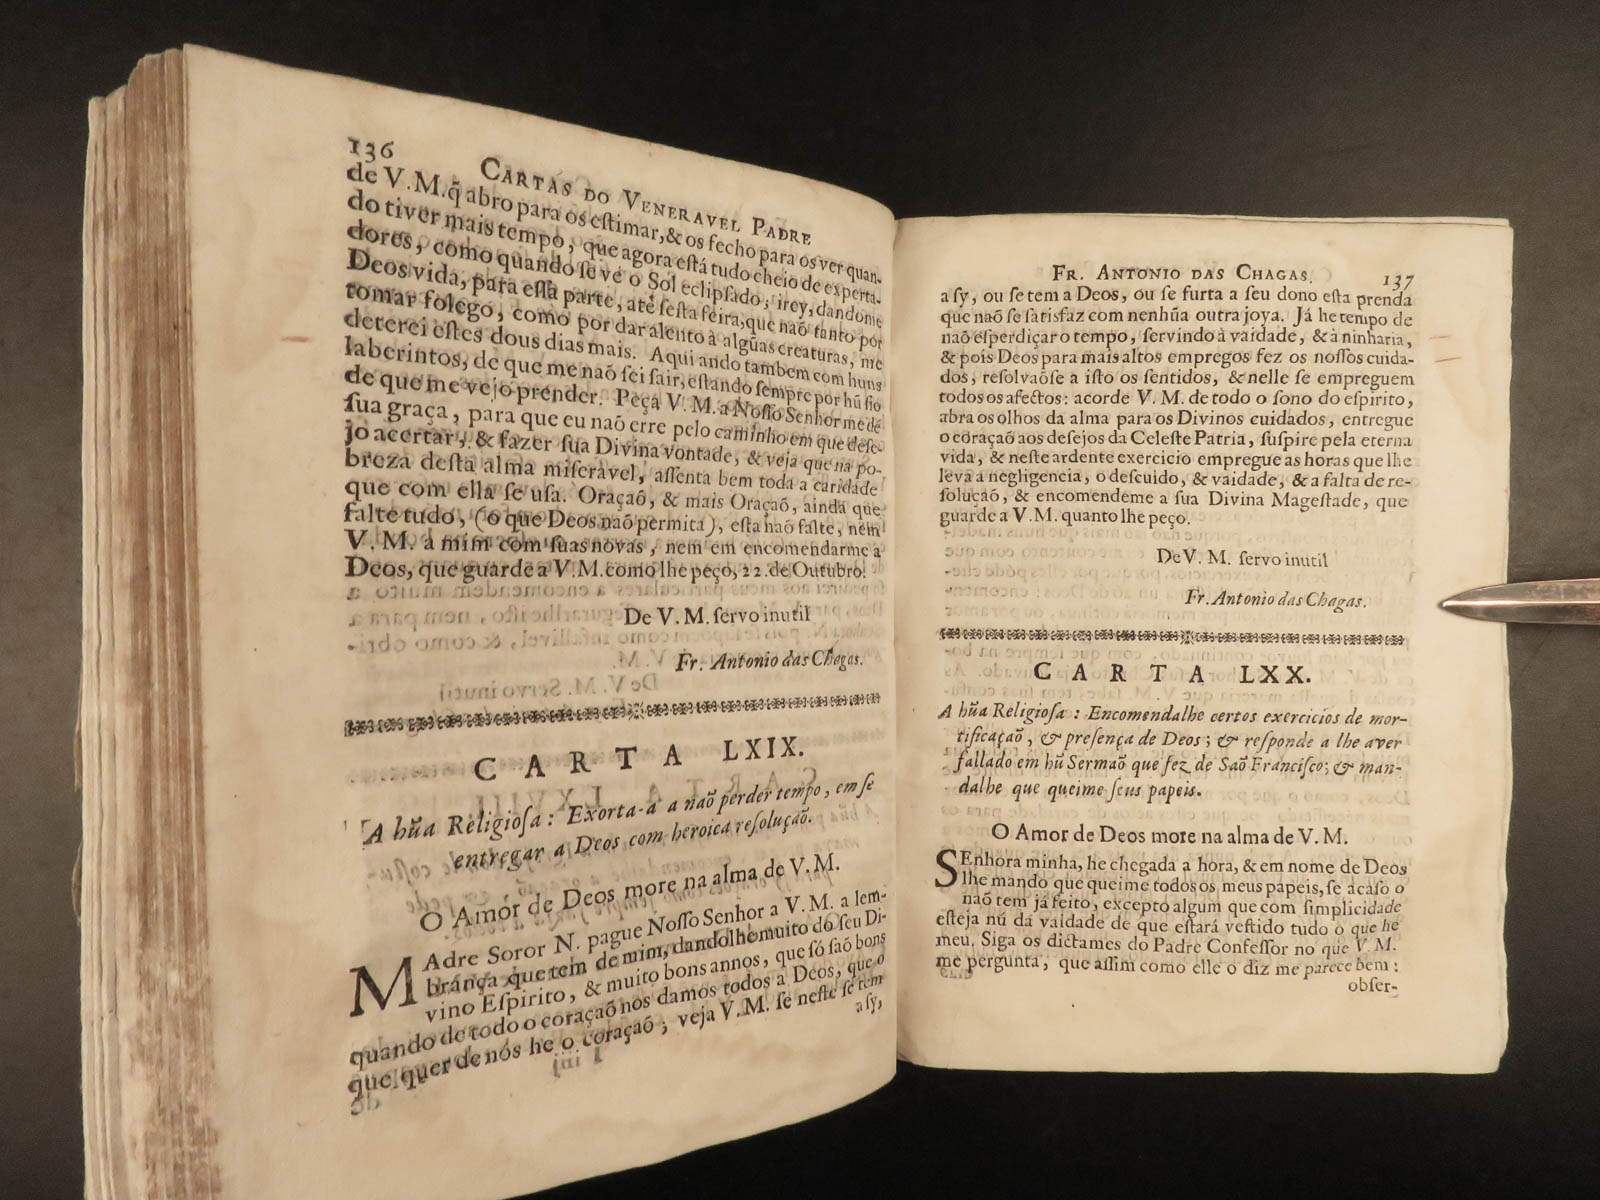 136
CARTAS DO VENERAVEL PADRE
de V.M. q̃ abro para os eſtimar, & os fecho para os ver quan-
do tiver mais tempo, que agora eſtá tudo cheio de eſperta-
dores, como quando ſe vè o Sol eclipſado; irey, dandome
Deos vida, para eſſa parte, até ſeſta feira, que naõ tanto por
tomar folego, como por dar alento à algũas creaturas, me
deterei eſtes dous dias mais. Aqui ando tambem com huns
laberintos, de que me naõ ſei ſair, eſtando ſempre por hũ fio
de que me vejo prender. Peça V.M. a Noſſo Senhor me dé
ſua graça, para que eu naõ erre pelo caminho em que deſe-
jo acertar, & fazer ſua Divina vontade, & veja que na po-
breza deſta alma miſeravel, aſſenta bem toda a caridade
que com ella ſe uſa. Oraçaõ, & mais Oraçaõ, ainda que
falte tudo, (o que Deos naõ permita), eſta naõ falte, nem
V. M. a mim com ſuas novas, nem em encomendarme a
Deos, que guarde a V.M. como lhe peço, 22. de Outubro.
De V. M. ſervo inutil
Fr. Antonio das Chagas.
CARTA LXIX.
A hũa Religioſa: Exorta-a a naõ perder tempo, em ſe
entregar a Deos com heroica reſoluçaõ.
O Amor de Deos more na alma de V. M.
MAdre Soror N. pague Noſſo Senhor a V. M. a lem-
brança que tem de mim, dandolhe muito do ſeu Di-
vino Eſpirito, & muito bons annos, que ſó ſaõ bons
quando de todo o coraçaõ nos damos todos a Deos, que o
que quer de nós he o coraçaõ; veja V. M. ſe neſte ſe tem
a ſy,
FR. ANTONIO DAS CHAGAS. 137
a ſy, ou ſe tem a Deos, ou ſe furta a ſeu dono eſta prenda
que naõ ſe ſatisfaz com nenhũa outra joya. Já he tempo de
naõ eſperdiçar o tempo, ſervindo à vaidade, & à ninharia,
& pois Deos para mais altos empregos fez os noſſos cuida-
dos, reſolvaõſe a iſto os ſentidos, & nelle ſe empreguem
todos os afectos: acorde V. M. de todo o ſono do eſpirito,
abra os olhos da alma para os Divinos cuidados, entregue
o coraçaõ aos deſejos da Celeſte Patria, ſuſpire pela eterna
vida, & neſte ardente exercicio empregue as horas que lhe
leva a negligencia, o deſcuido, & vaidade, & a falta de re-
ſoluçaõ, & encomendeme a ſua Divina Mageſtade, que
guarde a V. M. quanto lhe peço.
De V. M. ſervo inutil
Fr. Antonio das Chagas.
CARTA LXX.
A hũa Religioſa: Encomendalhe certos exercicios de mor-
tificaçaõ, & preſença de Deos; & reſponde a lhe aver
fallado em hũ Sermaõ que fez de Saõ Franciſco; & man-
dalhe que queime ſeus papeis.
O Amor de Deos more na alma de V. M.
SEnhora minha, he chegada a hora, & em nome de Deos
lhe mando que queime todos os meus papeis, ſe acaſo o
naõ tem já feito, excepto algum que com ſimplicidade
eſteja nú da vaidade de que eſtará veſtido tudo o que he
meu. Siga os dictames do Padre Confeſſor no que V. M.
me pergunta, que aſſim como elle o diz me parece bem:
obſer-